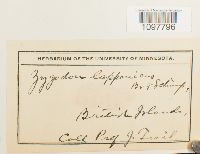 1097796
HERBARIUM OF THE UNIVERSITY OF MINNESOTA.
Zygodon Lapponicus
Br. & Schimp.
British Islands,
Coll. Prof. J. Trail